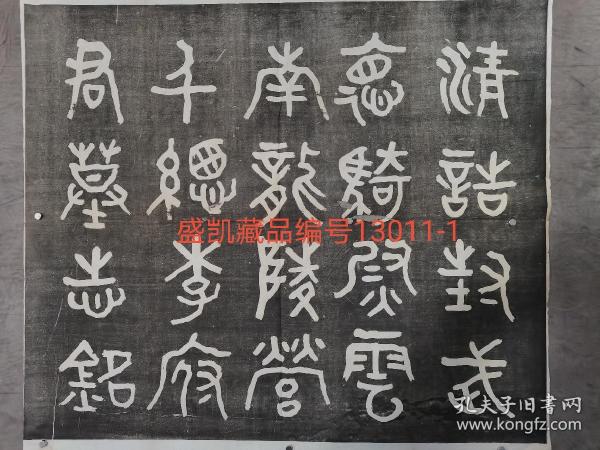 清誥封武
悳騎尉雲
南龍陵營
千總李府
君墓志銘
盛凯藏品编号13011-1
孔夫子旧書网
www.kongfz.com